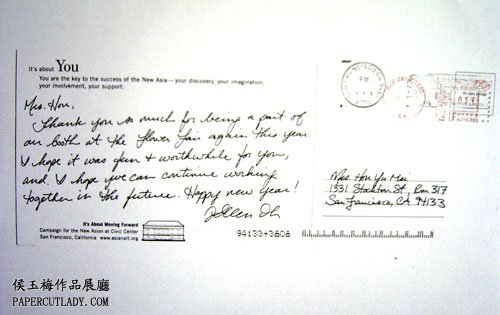 It's about You
You are the key to the success of the New Asia — your discovery, your imagination,
your involvement, your support.
Mrs. Hou,
Thank you so much for being a part of
our booth at the Flower Fair again this year.
I hope it was fun & worthwhile for you,
and I hope we can continue working
together in the future. Happy new year!
It's About Moving Forward
Campaign for the New Asian at Civic Center
San Francisco, California www.asianart.org
FRANCISCO CA
PM
Mrs. Hou Yu Mei
1331 Stockton St, Rm 317
San Francisco, CA 94133
94133+3808
侯玉梅作品展廳
PAPERCUTLADY.COM